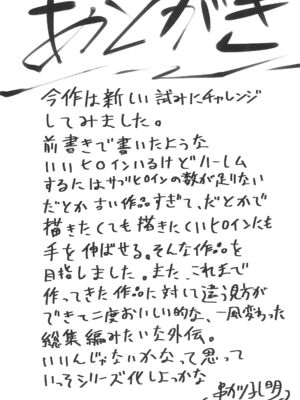 あとがき
今作は新しい試みにチャレンジ
してみました。
前書きで書いたような
いいヒロインいるけどハーレム
するにはサブヒロインの数が足りない
だとか すい作品すぎて、だとかで
描きたくても描きにくいヒロインにも
手を伸ばせる。そんな作品を
目指しました。また、これまで
作ってきた作品に対して違う見方が
できて二度おいしい的な、一風変わった
総集編みたいな外伝。
いいんじゃないかなって思って
いっそシリーズ化しよっかな